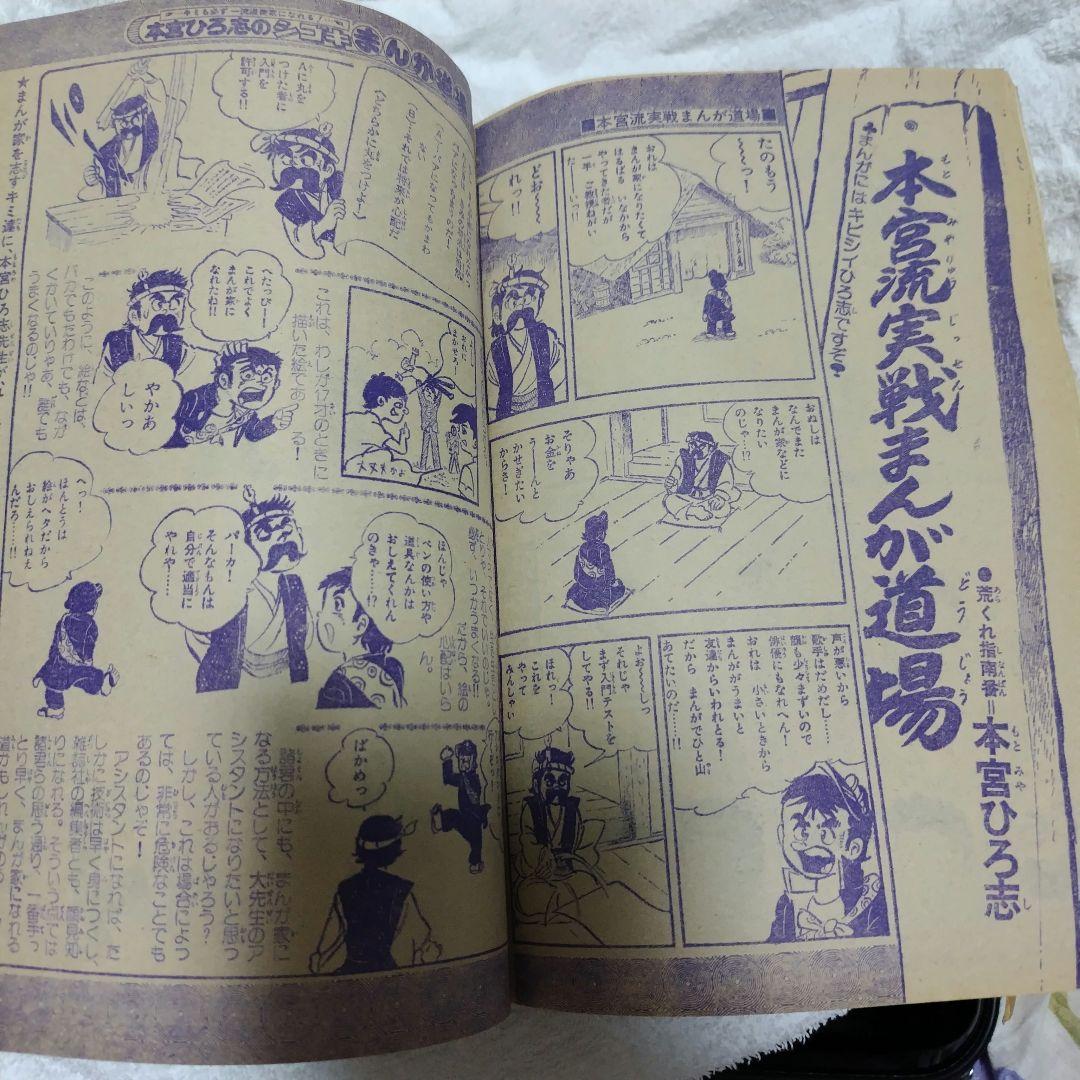 本宮流実戦まんが道場
もと みやりゅう じっせん どうじょう
♣まんがにはキビシイひろ志ですぞ♣
●荒くれ指南番=本宮ひろ志
■本宮流実戦まんが道場■
たのもう
〜〜〜っ!
おれは
まんが家になりたくて
はるばる いなかから
やってきた者だが
一手 ご教授ねがい
たーい!!
どお〜〜〜
れっ!!
おぬしは
なんでまた
まんが家などに
なりたい
のじゃ…!?
そりゃあ
うーーんと
お金を
かせぎたい
からさ!
声が悪いから
歌手はだめだし……
顔も少々まずいので
俳優にもなれへん!
おれは 小さいときから
まんががうまいと
友達からいわれとる!
だから まんがでひと山
あてたいのだ!!
よお〜〜しっ
それじゃ
まず入門テストを
してやる!!
ほれっ!
これを
みんしゃい
本宮ひろ志のシゴキまんが
Aに丸を
つけた者に
入門を
許可する!!
(どちらかに丸をつけよ)
★まんが家を志すキミ達に、本宮ひろ志先生が、
おれに
まかせろ!
大丈夫かよ
これは、わしが17才のときに
描いた絵である!
へたっぴー!
これでよく
まんが家に
なれたね!!
やかあ
しいっ
このように、絵などは、
バカでもたわけでも、なが
くかいていりゃあ、誰でも
うまくなるのじゃ!!
だから、絵の
心配はいら
ん。
ほんじゃ
ペンの使い方や
道具なんかは
おしえてくれん
のきゃ……!?
バーカ!
そんなもんは
自分で適当に
やれや……
へっ!
ほんとうは
絵がヘタだから
おしえられねえ
んだろ……!!
ばかめっ
諸君の中にも、まんが家に
なる方法として、大先生のア
シスタントになりたいと思っ
ている人がおるじゃろう?
しかし、これは場合によっ
ては、非常に危険なことでも
あるのじゃぞ!
アシスタントになれば、た
しかに技術は早く身につくし、
雑誌社の編集者とも、顔見知
りになれる。そういう点では
諸君らの思う通り、一番手っ
とり早く、まんが家になれる